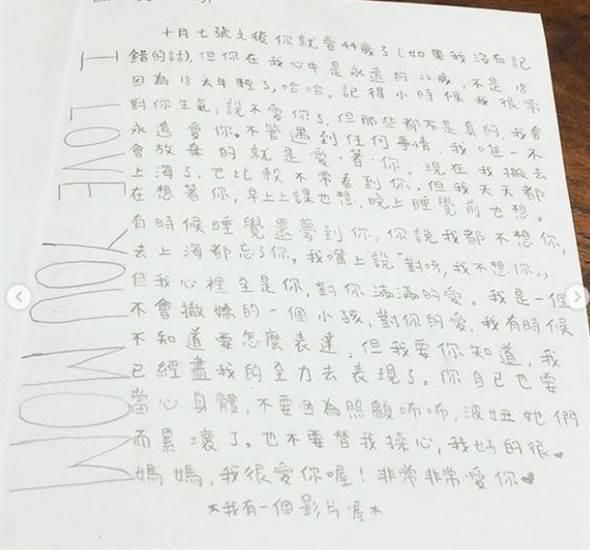 十月七號之後你就變44歲了(如果我沒有記
錯的話),但你在我心中是永遠的22歲,不是18
因為18太年輕了,哈哈。記得小時候我很常
對你生氣,說不愛你了,但那些都不是真的,我會
永遠愛你。不管遇到任何事情,我唯一不
會放棄的就是愛·著·你。現在我搬去
上海了,也比較不常看到你,但我天天都
在想著你,早上上課也想,晚上睡覺前也想。
有時候睡覺還夢到你,你說我都不想你,
去上海都忘了你,我嘴上說「對呀,我不想你」,
但我心裡全是你,對你滿滿的愛。我是一個
不會撒嬌的一個小孩,對你的愛,我有時候
不知道要怎麼表達,但我要你知道,我
已經盡我的全力去表現了。你自己也要
當心身體,不要因為照顧咘咘,波妞她們
而累壞了。也不要替我操心,我好的很♥
媽媽,我很愛你喔!非常非常愛你♥
*我有一個影片喔*
I LOVE YOU MOM